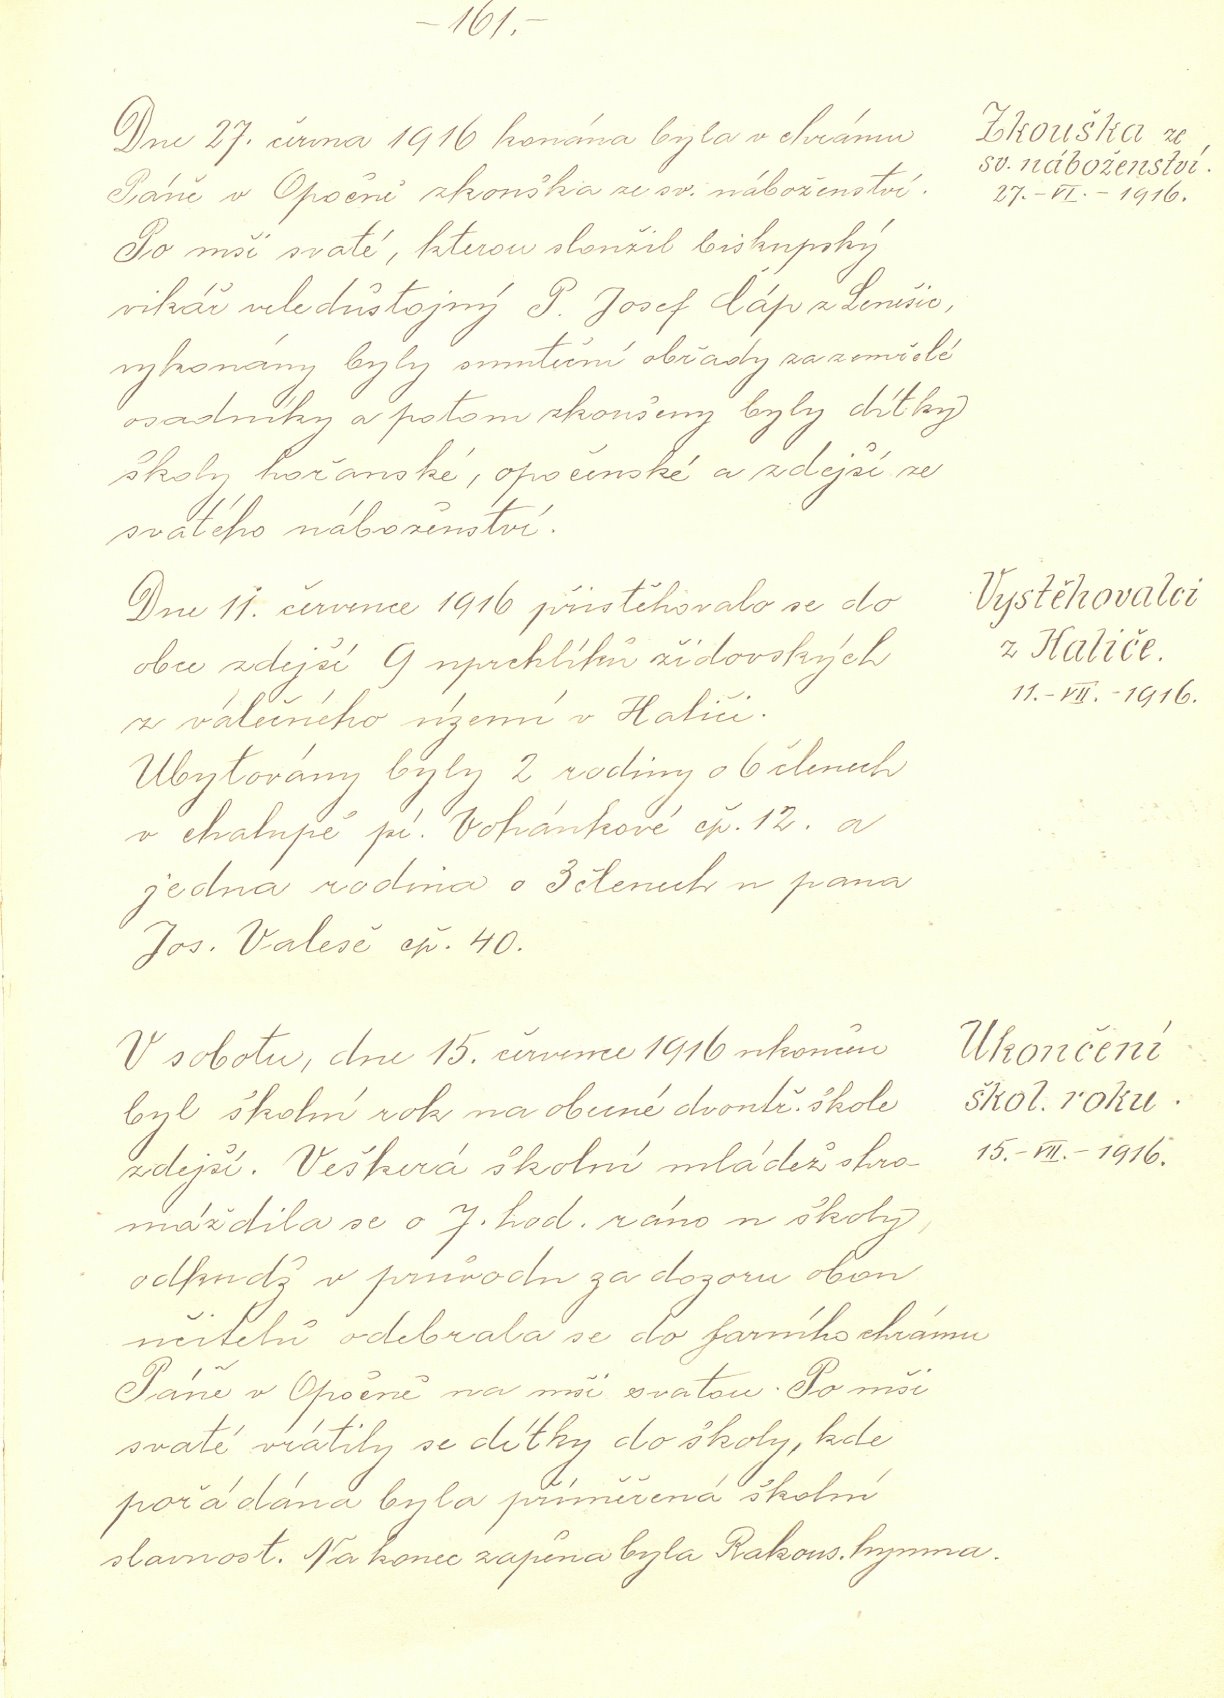 - 161. -
Dne 27. června 1916 konána byla v chrámu
Páně v Opočně zkouška ze sv. náboženství.
Po mši svaté, kterou sloužil biskupský
vikář veledůstojný P. Josef Čáp z Lenešic,
vykonány byly smuteční obřady za zemřelé
osadníky a potom zkoušeny byly dítky
školy hořanské, opočenské a zdejší ze
svatého náboženství.
Zkouška ze
sv. náboženství.
27. - VI. - 1916.
Dne 11. července 1916 přistěhovalo se do
obce zdejší 9 uprchlíků židovských
z válečného území v Haliči.
Ubytovány byly 2 rodiny o 6 členech
v chalupě pí. Vohánkové čp. 12. a
jedna rodina o 3 členech u pana
Jos. Valeše čp. 40.
Vystěhovalci
z Haliče.
11. - VII. - 1916.
V sobotu, dne 15. července 1916 ukončen
byl školní rok na obecné dvoutř. škole
zdejší. Veškerá školní mládež shro-
máždila se o 7. hod. ráno u školy,
odkudž v průvodu za dozoru obou
učitelů odebrala se do farního chrámu
Páně v Opočně na mši svatou. Po mši
svaté vrátily se dítky do školy, kde
pořádána byla přiměřená školní
slavnost. Na konec zapěna byla Rakous. hymna.
Ukončení
škol. roku.
15. - VII. - 1916.